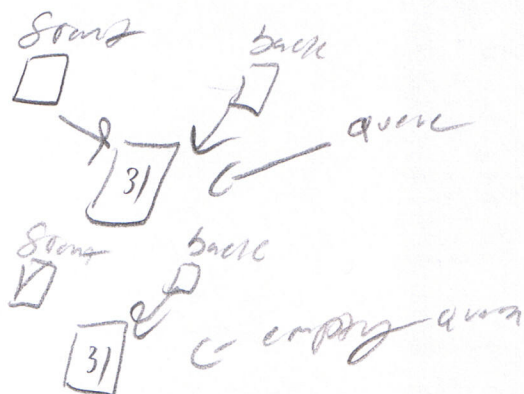 front back
queue
31
front back
31 empty queue